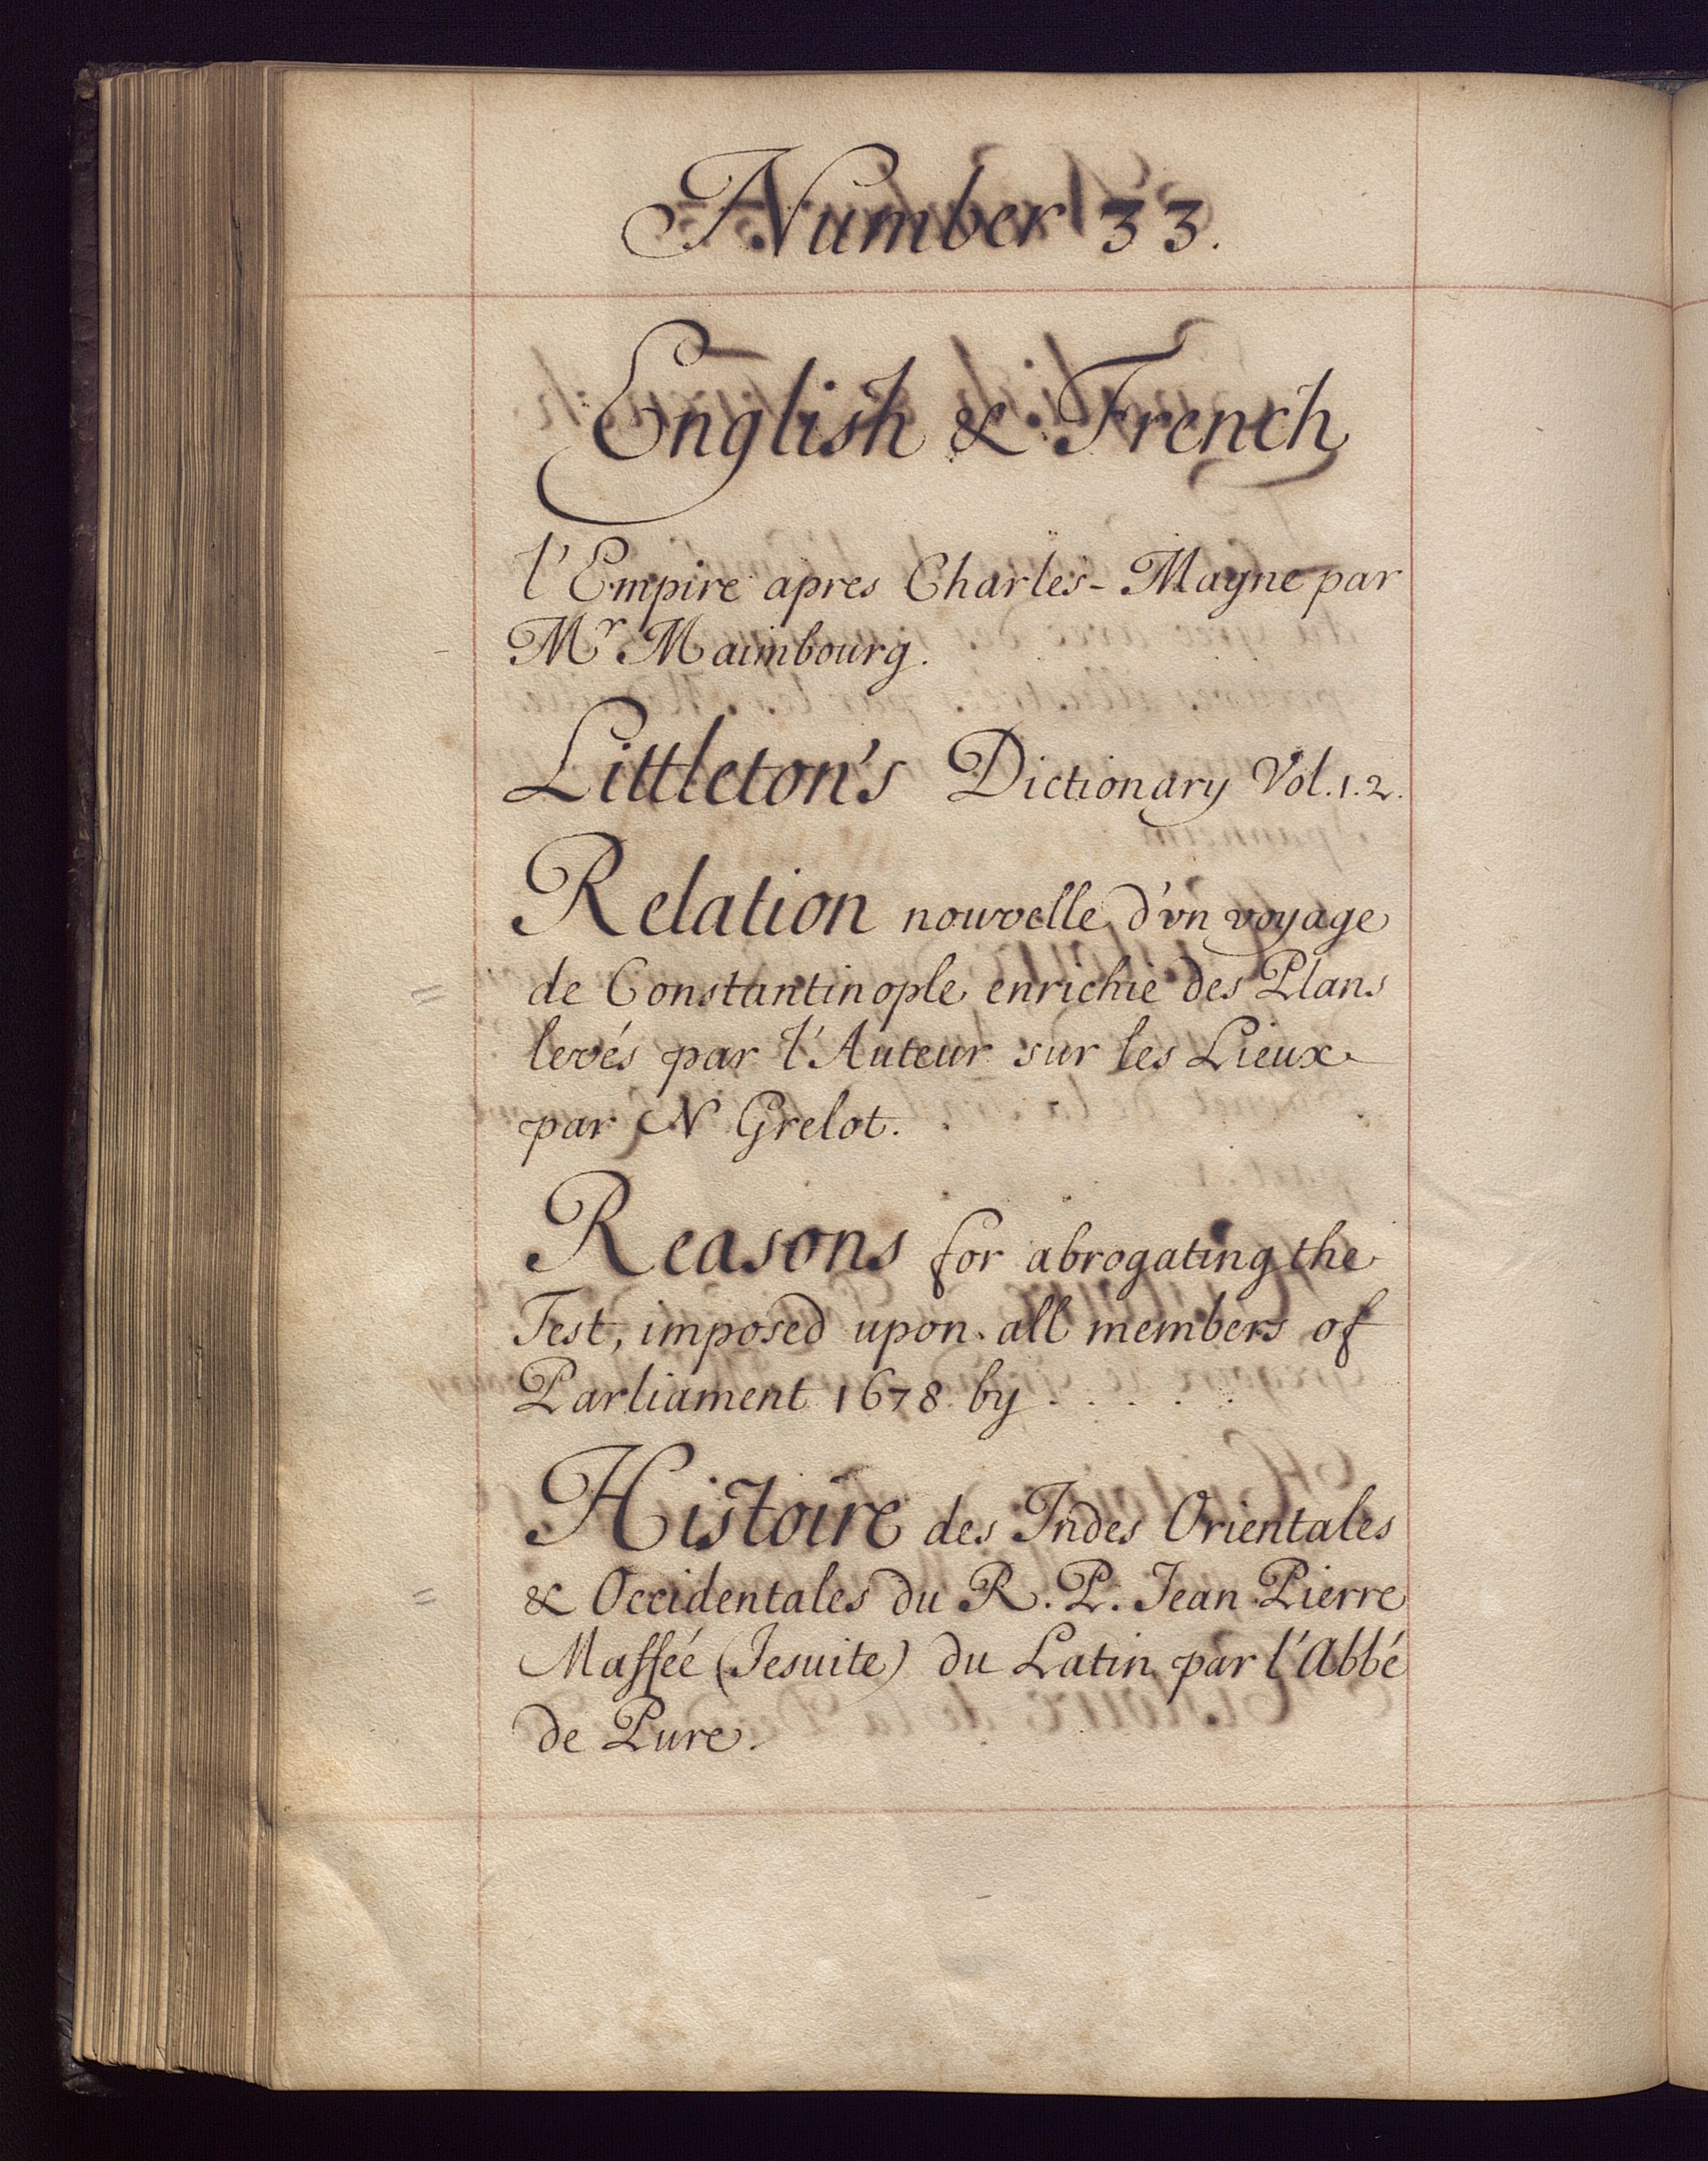 Number 33.
English & French
l'Empire apres Charles-Magne par
Mr Maimbourg.
Littleton's Dictionary Vol. 1. 2.
Relation nouvelle d'vn voyage
de Constantinople enrichie des Plans
levés par l'Auteur sur les Lieux
par N Grelot.
Reasons for abrogating the
Test, imposed upon all members of
Parliament 1678 by . . . . .
Histoire des Indes Orientales
& Occidentales du R. P. Jean Pierre
Maffée (Jesuite) du Latin par l'Abbé
de Pure.